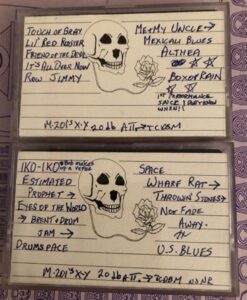 TOUCH OF GRAY
LIL' RED ROOSTER
FRIEND OF THE DEVIL
IT'S ALL OVER NOW
ROW JIMMY
ME + MY UNCLE →
MEXICALI BLUES
ALTHEA
BOX OF RAIN
1ST PERFORMANCE
SINCE
M-201 3 X-Y 20 66 ATT → TCD5M
IKO-IKO
ESTIMATED
PROPHET →
EYES OF THE WORLD
→ BRENT + DRUM
JAM →
DRUMSPACE
SPACE
WHARF RAT →
THROWIN STONES →
NOT FADE
AWAY
U.S. BLUES
M-201 3 X-Y 20 66 ATT → TCD5M NO NR